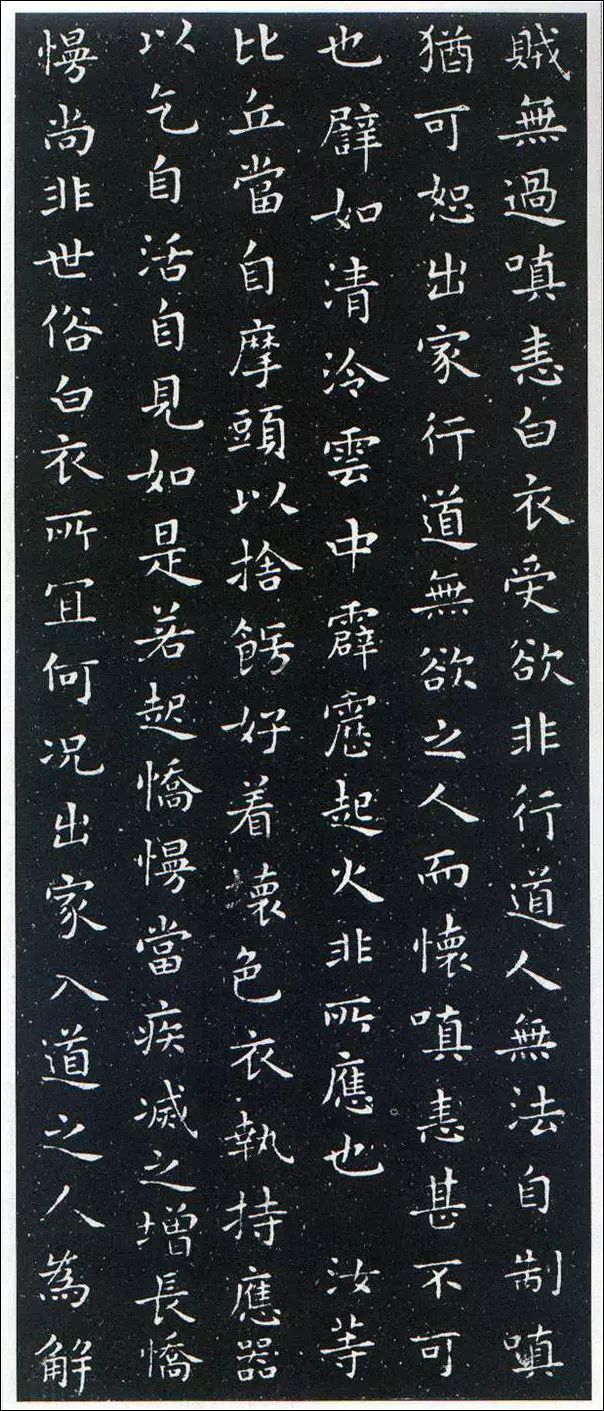 賊無過嗔恚白衣受欲非行道人無法自制嗔
猶可恕出家行道無欲之人而懷嗔恚甚不可
也譬如清泠雲中霹靂起火非所應也 汝等
比丘當自摩頭以捨餝好着壞色衣執持應器
以乞自活自見如是若起憍慢當疾滅之增長憍
慢尚非世俗白衣所宜何况出家入道之人為解